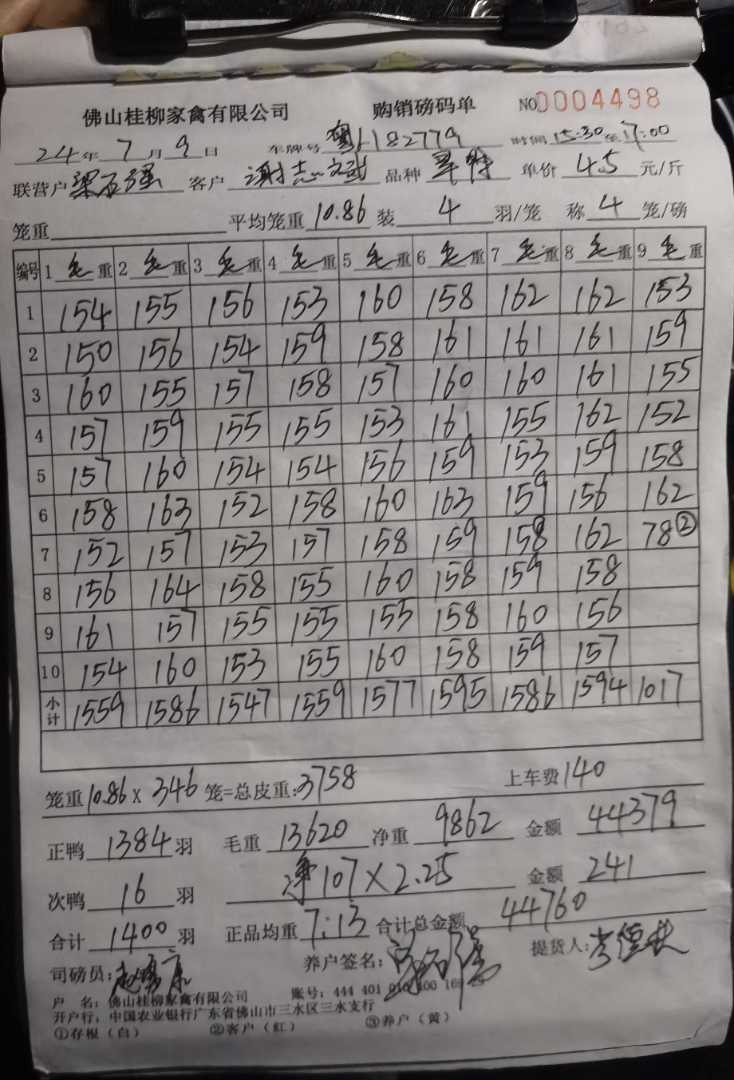 佛山桂柳家禽有限公司 购销磅码单 NO 0004498
24年 7月 9日 车牌号 粤 182779 时间 15:30至17:00
联营户 梁石强 客户 谢志文 品种 单价 4.5 元/斤
笼重 平均笼重 10.86 装 4 羽/笼 称 4 笼/磅
编号 1 毛重 2 毛重 3 毛重 4 毛重 5 毛重 6 毛重 7 毛重 8 毛重 9 毛重
1 154 155 156 153 160 158 162 162 153
2 150 156 154 159 158 161 161 161 159
3 160 155 157 158 157 160 160 161 155
4 157 159 155 155 153 161 155 162 152
5 157 160 154 154 156 159 153 159 158
6 158 163 152 158 160 163 159 156 162
7 152 157 153 157 158 159 158 162 78②
8 156 164 158 155 160 158 159 158
9 161 157 155 155 155 158 160 156
10 154 160 153 155 160 158 159 157
小计 1559 1586 1547 1559 1577 1595 1586 1594 1017
笼重 10.86 x 346 笼=总皮重: 3758 上车费 140
正鸭 1384 羽 毛重 13620 净重 9862 金额 44379
次鸭 16 羽 净107×2.25 金额 241
合计 1400 羽 正品均重 7.13 合计总金额 44760
司磅员: 养户签名: 提货人:
户 名: 佛山桂柳家禽有限公司 账号: 444 401 010 400 16
开户行: 中国农业银行广东省佛山市三水区三水支行
①存根(白) ②客户(红) ③养户(黄)